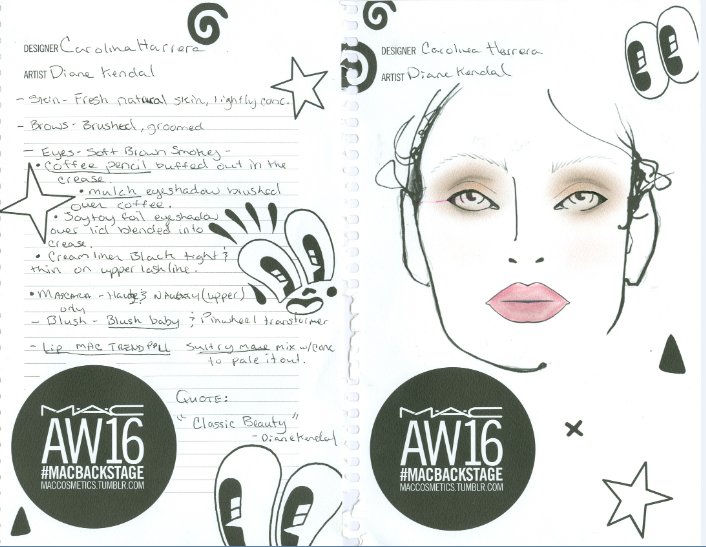 DESIGNER Carolina Harrera
ARTIST Diane Kendal
- Skin - Fresh natural skin, lightly conc.
- Brows - Brushed, groomed
- Eyes - Soft Brown Smokey -
• Coffee pencil buffed out in the
crease.
• mulch eyeshadow brushed
over coffee.
• Soytoy foil eyeshadow
over lid blended into
crease.
• Cream liner Black tight &
thin on upper lashline.
• Mascara - Haute & Naughty (upper)
only
- Blush - Blush baby & Pinwheel transformer
- Lip MAC TRENDPALL Sultry move mix w/conc
to pale it out.
QUOTE:
"Classic Beauty"
- Diane Kendal
MAC
AW16
#MACBACKSTAGE
MACCOSMETICS.TUMBLR.COM
DESIGNER Carolina Herrera
ARTIST Diane Kendal
MAC
AW16
#MACBACKSTAGE
MACCOSMETICS.TUMBLR.COM